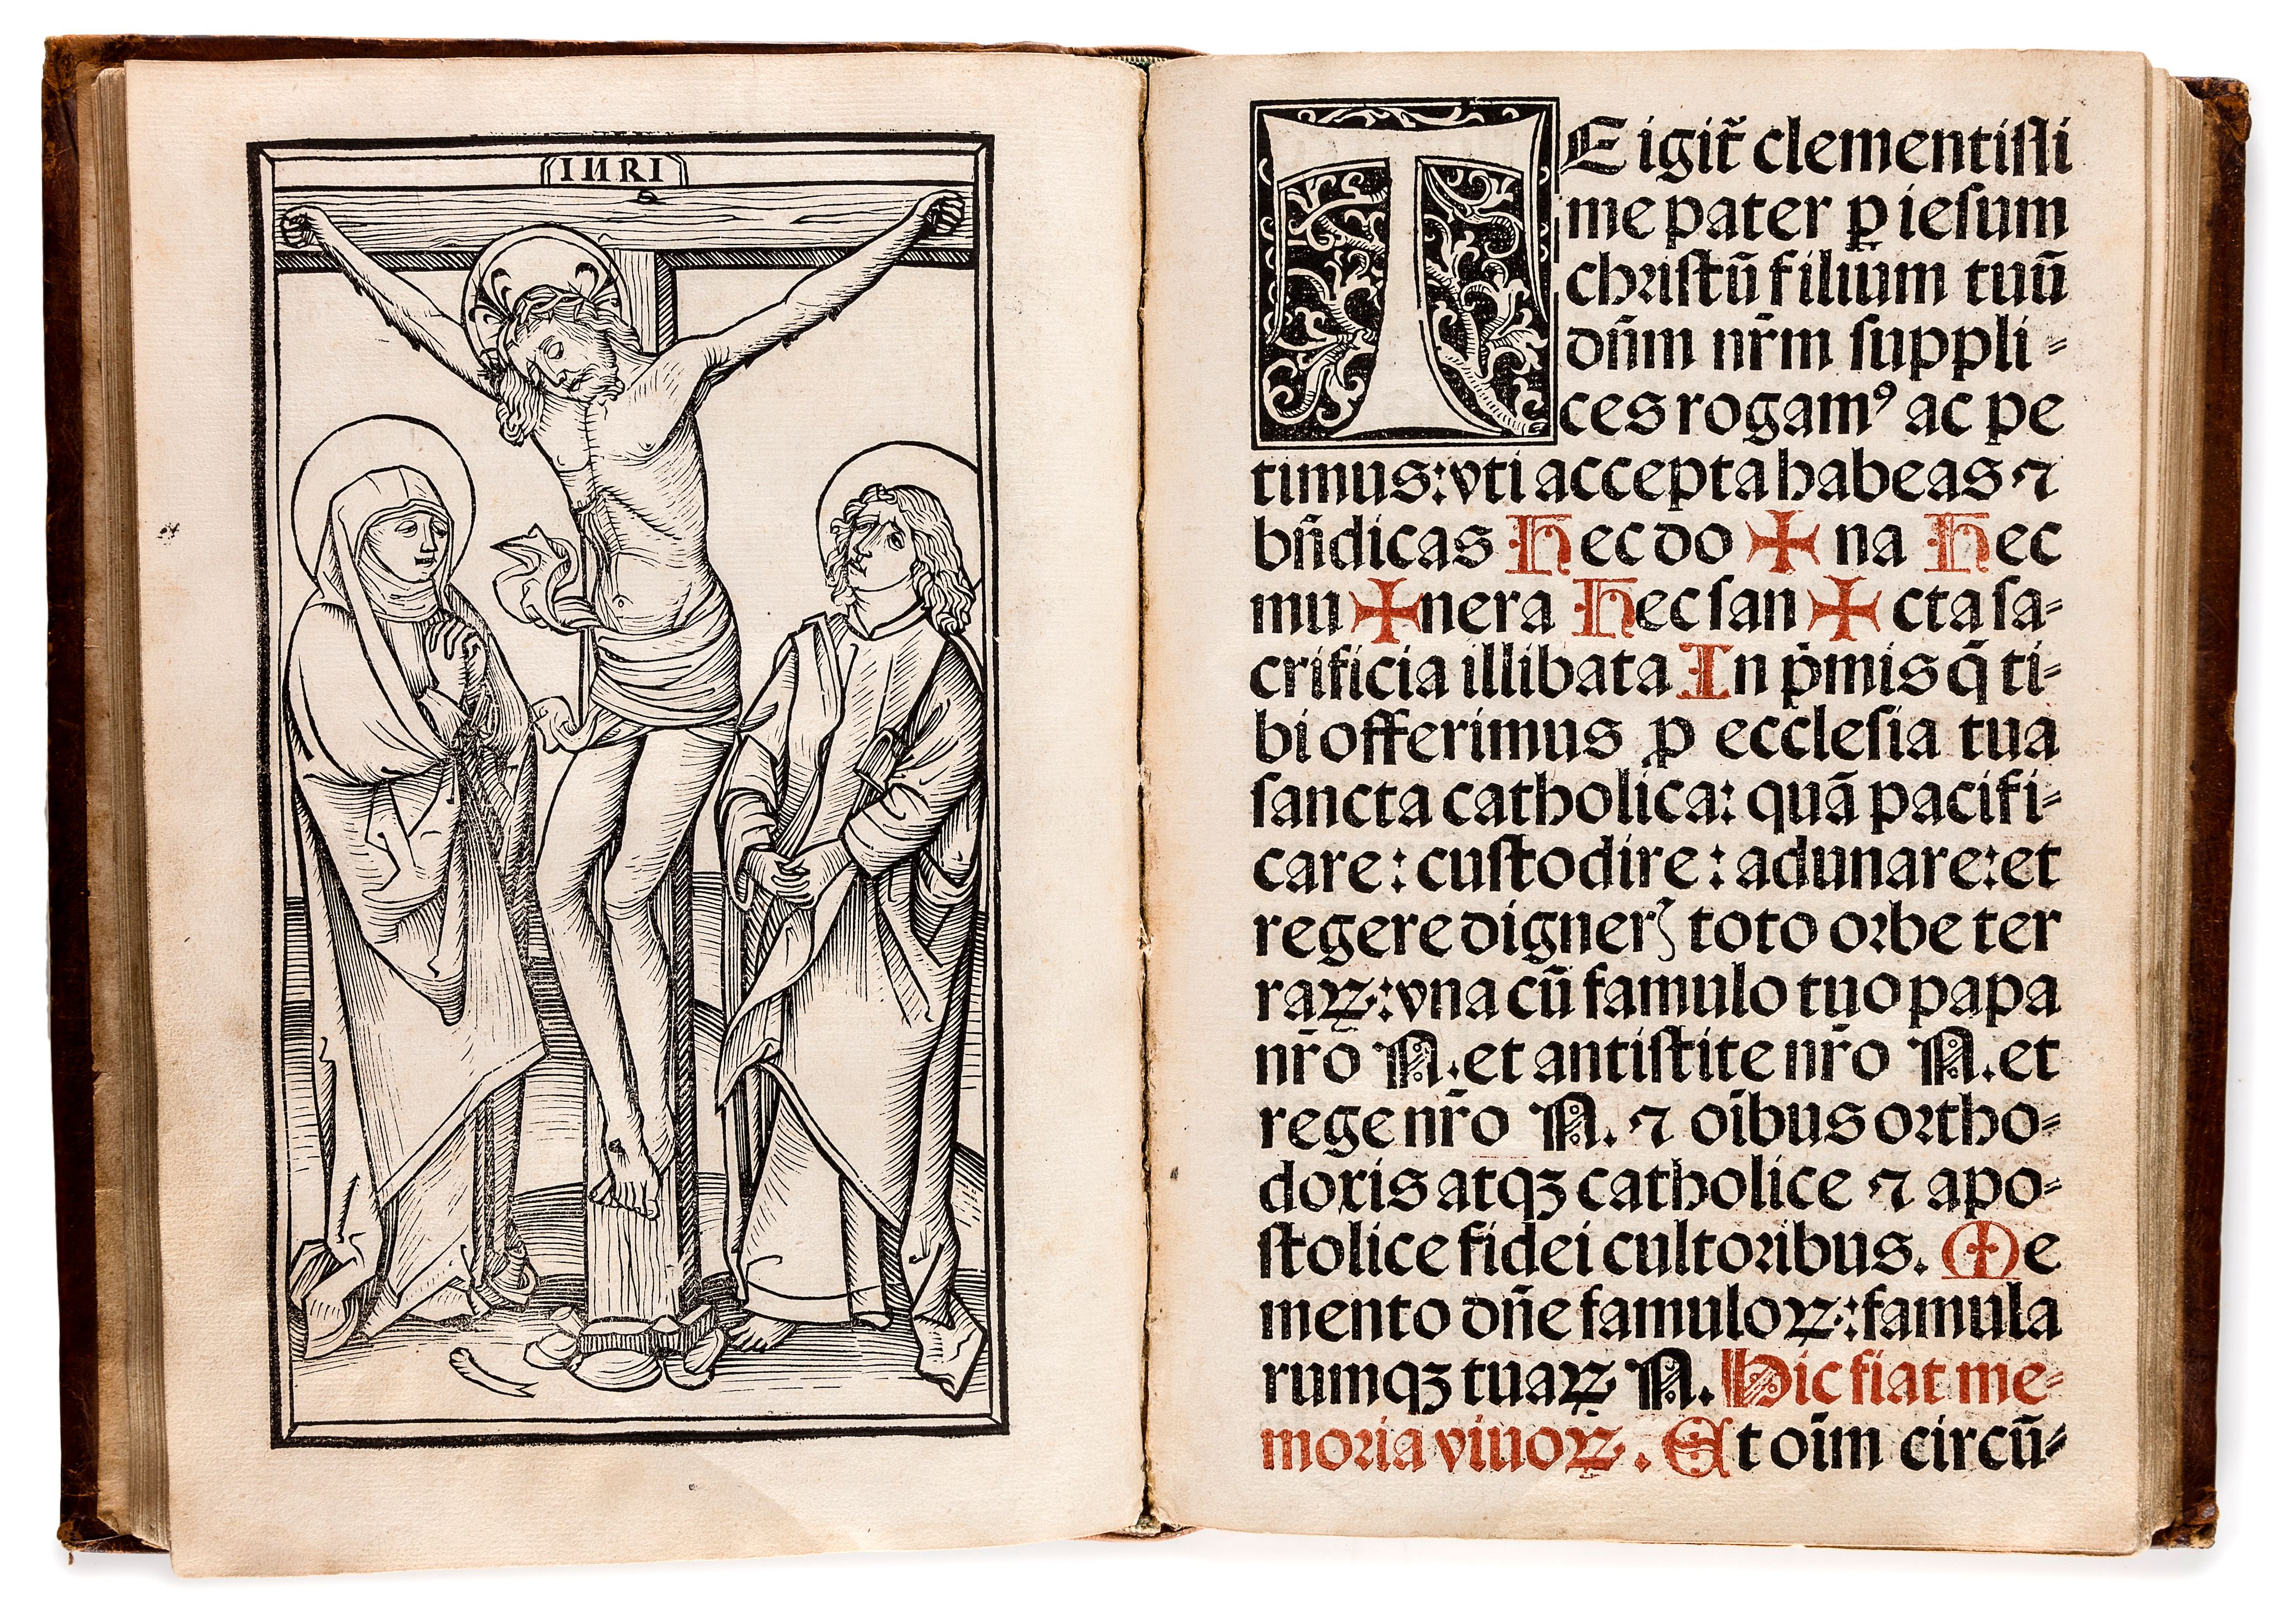 INRI
TE igit̃ clementissi
me pater ꝑ iesum
christū filium tuū
dñm nr̃m suppli⸗
ces rogamꝰ ac pe
timus: vti accepta habeas ⁊
bñdicas Hec do ✠ na Hec
mu ✠ nera Hec san ✠ cta sa⸗
crificia illibata In p̄mis q̄ ti⸗
bi offerimus ꝓ ecclesia tua
sancta catholica: quā pacifi⸗
care: custodire: adunare: et
regere digner�ʒ toto orbe ter
raꝝ: vna cū famulo tuo papa
nr̄o N. et antistite nr̄o N. et
rege nr̄o N. ⁊ oībus ortho⸗
doxis atqꝫ catholice ⁊ apo⸗
stolice fidei cultoribus. Me
mento dñe famuloꝝ: famula
rumqꝫ tuaꝝ N. Hic fiat me⸗
moria viuoꝝ. Et oīm circū⸗